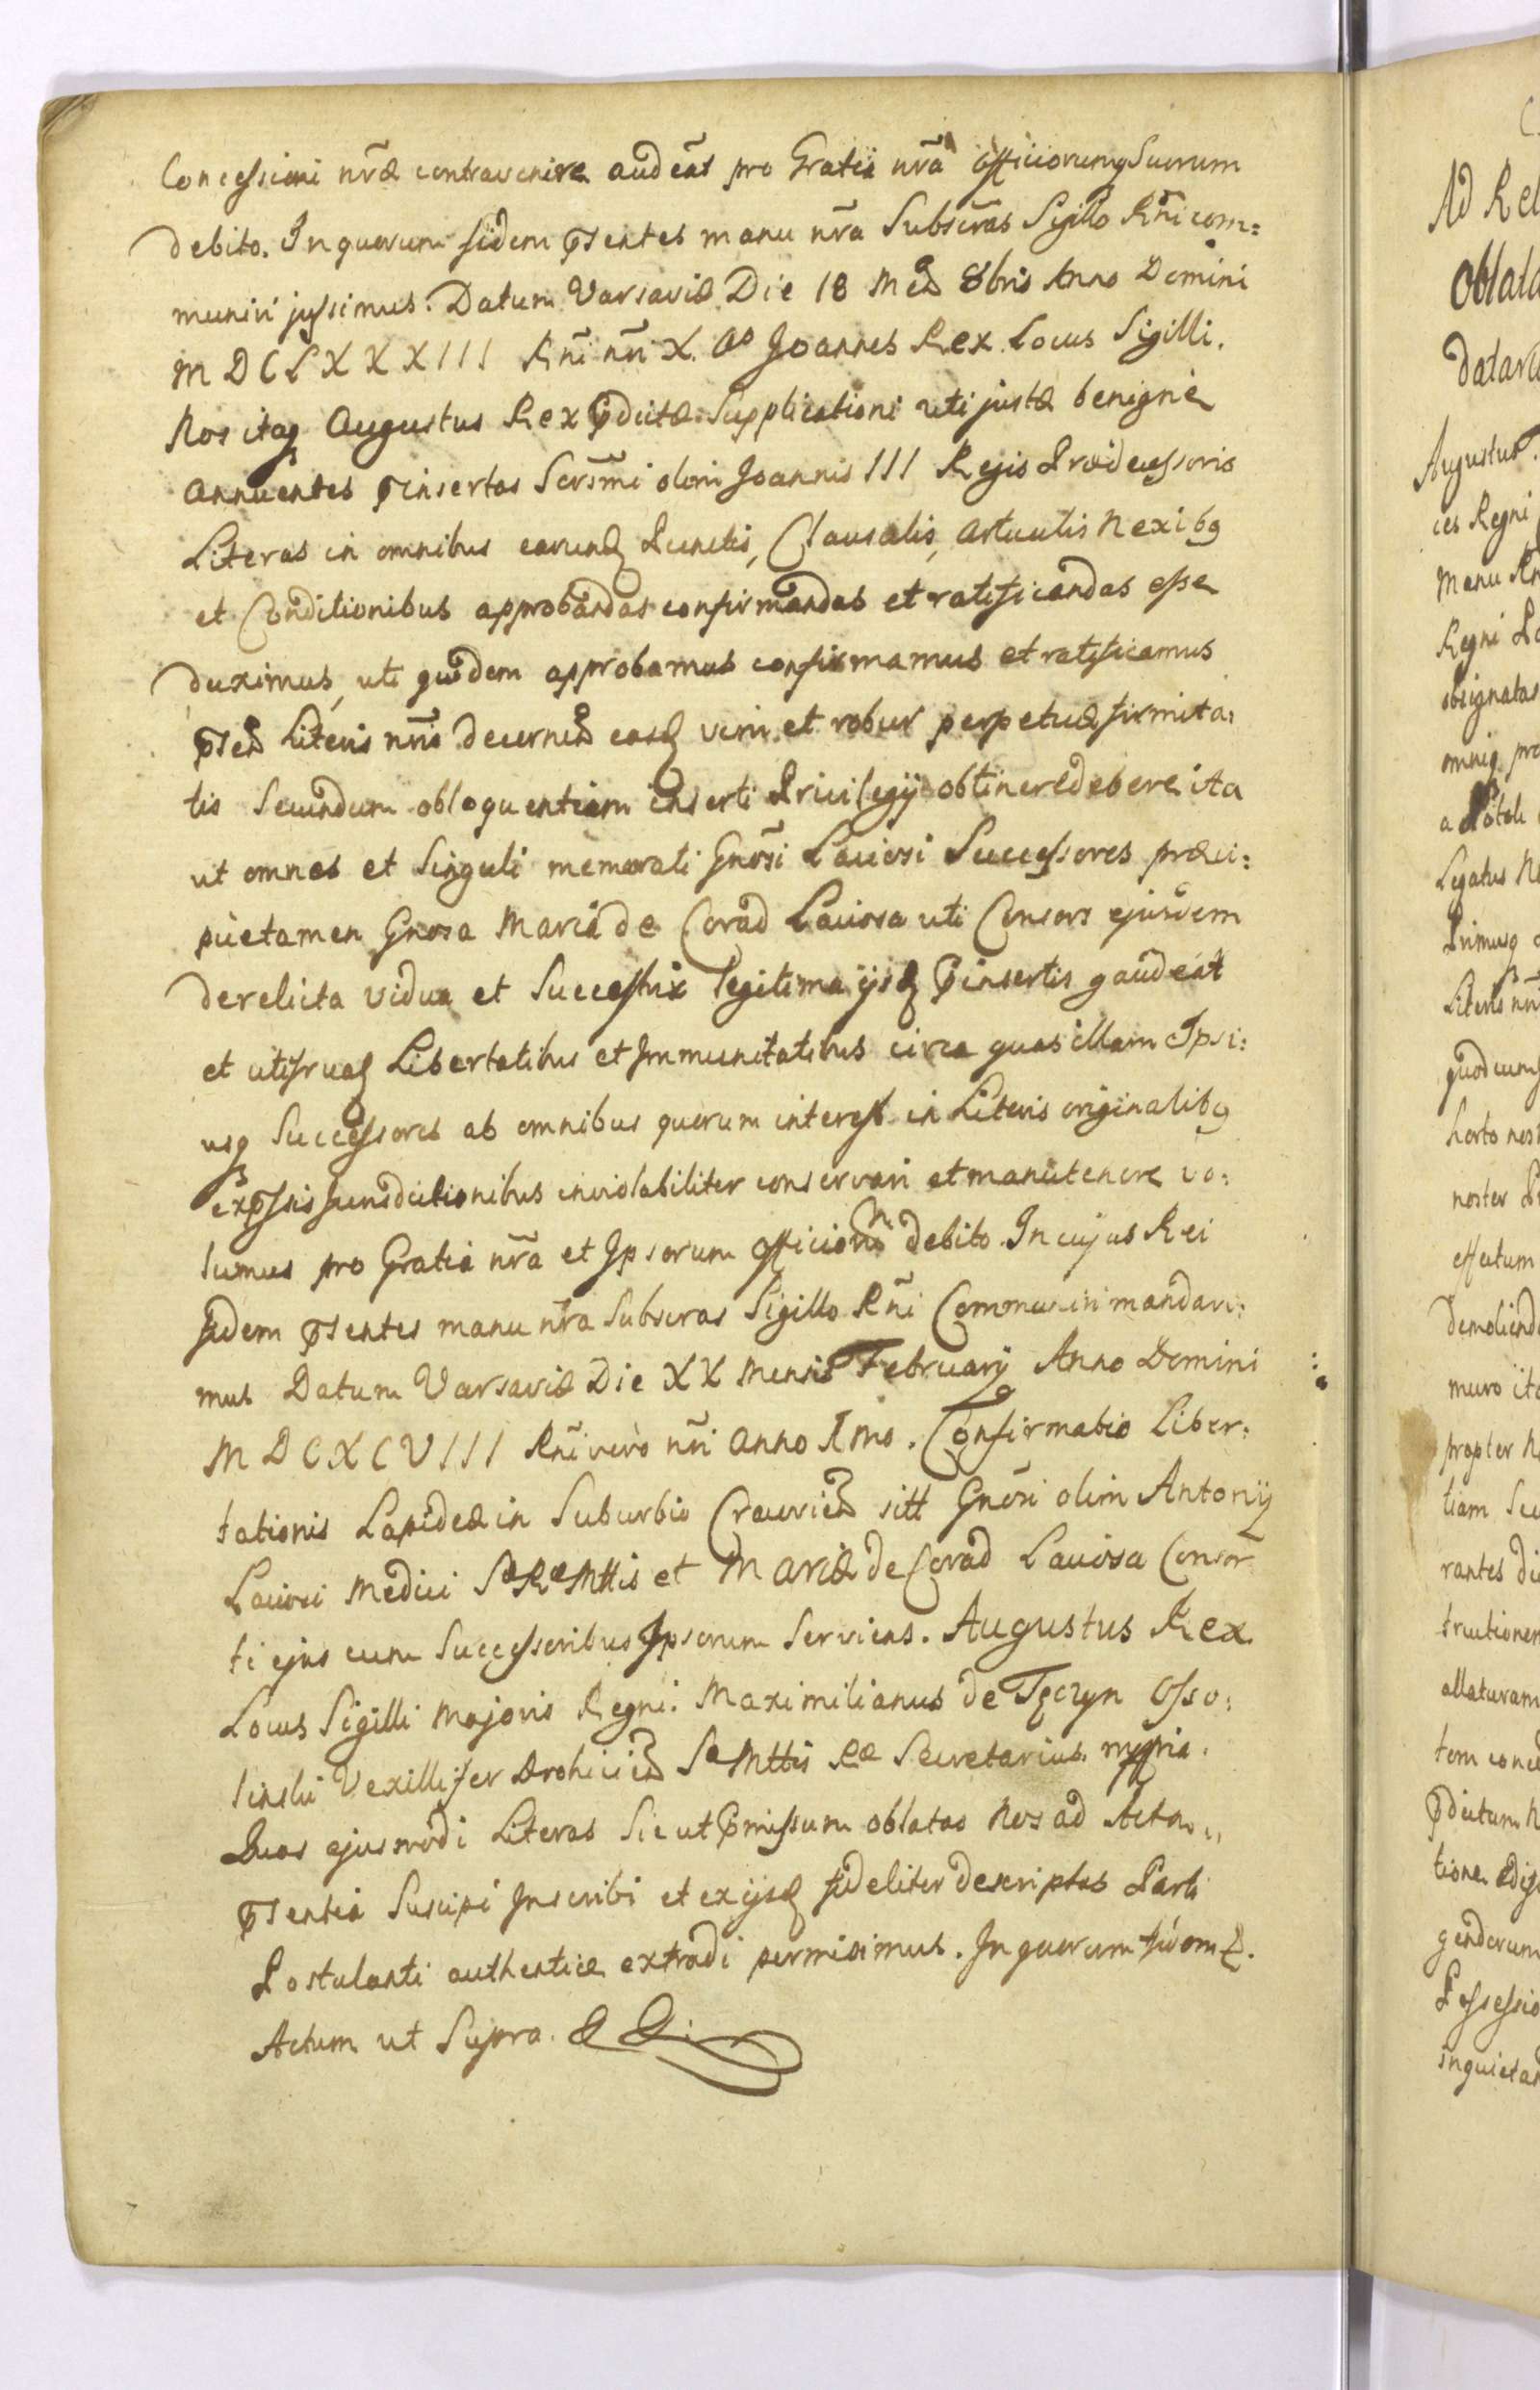 Concessioni nrae contravenire audeat pro Gratia nra officiorumq Suorum
debito. In quorum fidem pntes manu nra Subscras Sigillo Rni com=
muniri jussimus. Datum Varsaviae Die 18 Mens 8bris Anno Domini
MDCLXXXIII Rni nri X. Ao Joannes Rex. Locus Sigilli.
Nos itaq Augustus Rex pdictae Supplicationi uti justae benigne
annuentes pinsertas Sersmi olim Joannis III Regis Praedecessoris
Literas in omnibus earundq Punctis, Clausulis, articulis Nexibq
et Conditionibus approbandas confirmandas et ratificandas esse
duximus, uti quidem approbamus confirmamus et ratificamus
pntes Literis nris decernen easq vim et robur perpetuae firmita=
tis Secundum obloquentiam inserti Privilegij obtinere debere ita
ut omnes et Singuli memorati Gnosi Laviosi Successores praeci=
pue tamen Gnosa Maria de Corad Laviosa uti Consors ejusdem
derelicta vidua et Successtrix legitima ijsq pinsertis gaudeat
et uti fruaq Libertatibus et Immunitatibus circa quas illam Ipsi=
usq Successores ab omnibus quorum interest in Literis originalibq
expssis Jurisdictionibus inviolabiliter conservari et manutenere vo=
lumus pro Gratia nra et Ipsorum officiorum debito. In cujus Rei
fidem pntes manu nra Subscras Sigillo Rni Communiri mandavi=
mus Datum Varsaviae Die XX Mensis February Anno Domini
MDCXCVIII Rni vero nri Anno Imo. Confirmatio Liber=
tationis Lapideae in Suburbio Cracovien sitt Gnosi olim Antonij
Laviosi Medici SaeRaeMttis et Mariae de Corad Laviosa Consor
ti ejus cum Successoribus Ipsorum Serviens. Augustus Rex
Locus Sigilli Majoris Regni. Maximilianus de Tęczyn Osso=
linski Vexillifer Drohicien Sae Mttis Rae Secretarius mppria.
Quas ejusmodi Literas Sic ut pmissum oblatas Nos ad Acta
pntia Suscipi Inscribi et ex ijsq fideliter descriptas Parti
Postulanti authentice extradi permisimus. In quorum fidem &.
Actum ut Supra.
Ad Rel
Oblata
datar
Augustus
ces Regni
Manu
Regni
obsignatas
omniq pro
Legatus
Primusq
Literis nri
quodcunq
horto nos
noster
effectum
demoliend
muro ita
propter
tiam
rantes
tructionem
allaturam
tem
pdictum
tione
gendorum
Possessio
inquietan